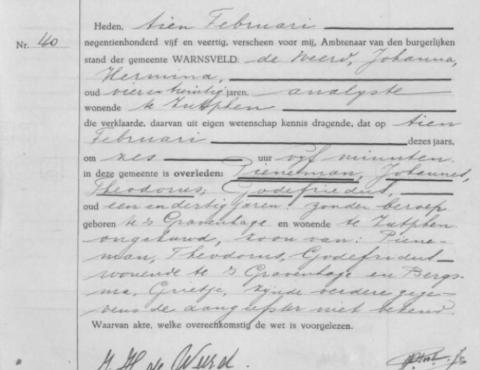 Nr. 40
Heden, tien Februari
negentienhonderd vijf en veertig, verscheen voor mij, Ambtenaar van den burgerlijken
stand der gemeente WARNSVELD: de Weerd, Johanna,
Hermina,
oud vierentwintig jaren, analyste
wonende te Zutphen
die verklaarde, daarvan uit eigen wetenschap kennis dragende, dat op tien
Februari dezes jaars,
om zes uur vijf minuten
in deze gemeente is overleden: Pieneman, Johannes,
Theodorus, Godefrident,
oud een en dertig jaren, zonder beroep
geboren te 's Gravenhage en wonende te Zutphen
ongehuwd, zoon van: Piene-
man, Theodorus, Godefrident
wonende te 's Gravenhage en Bergs-
ma, Grietje, zijnde verdere gege-
vens de aangifster niet bekend.
Waarvan akte, welke overeenkomstig de wet is voorgelezen.
J H de Weerd.